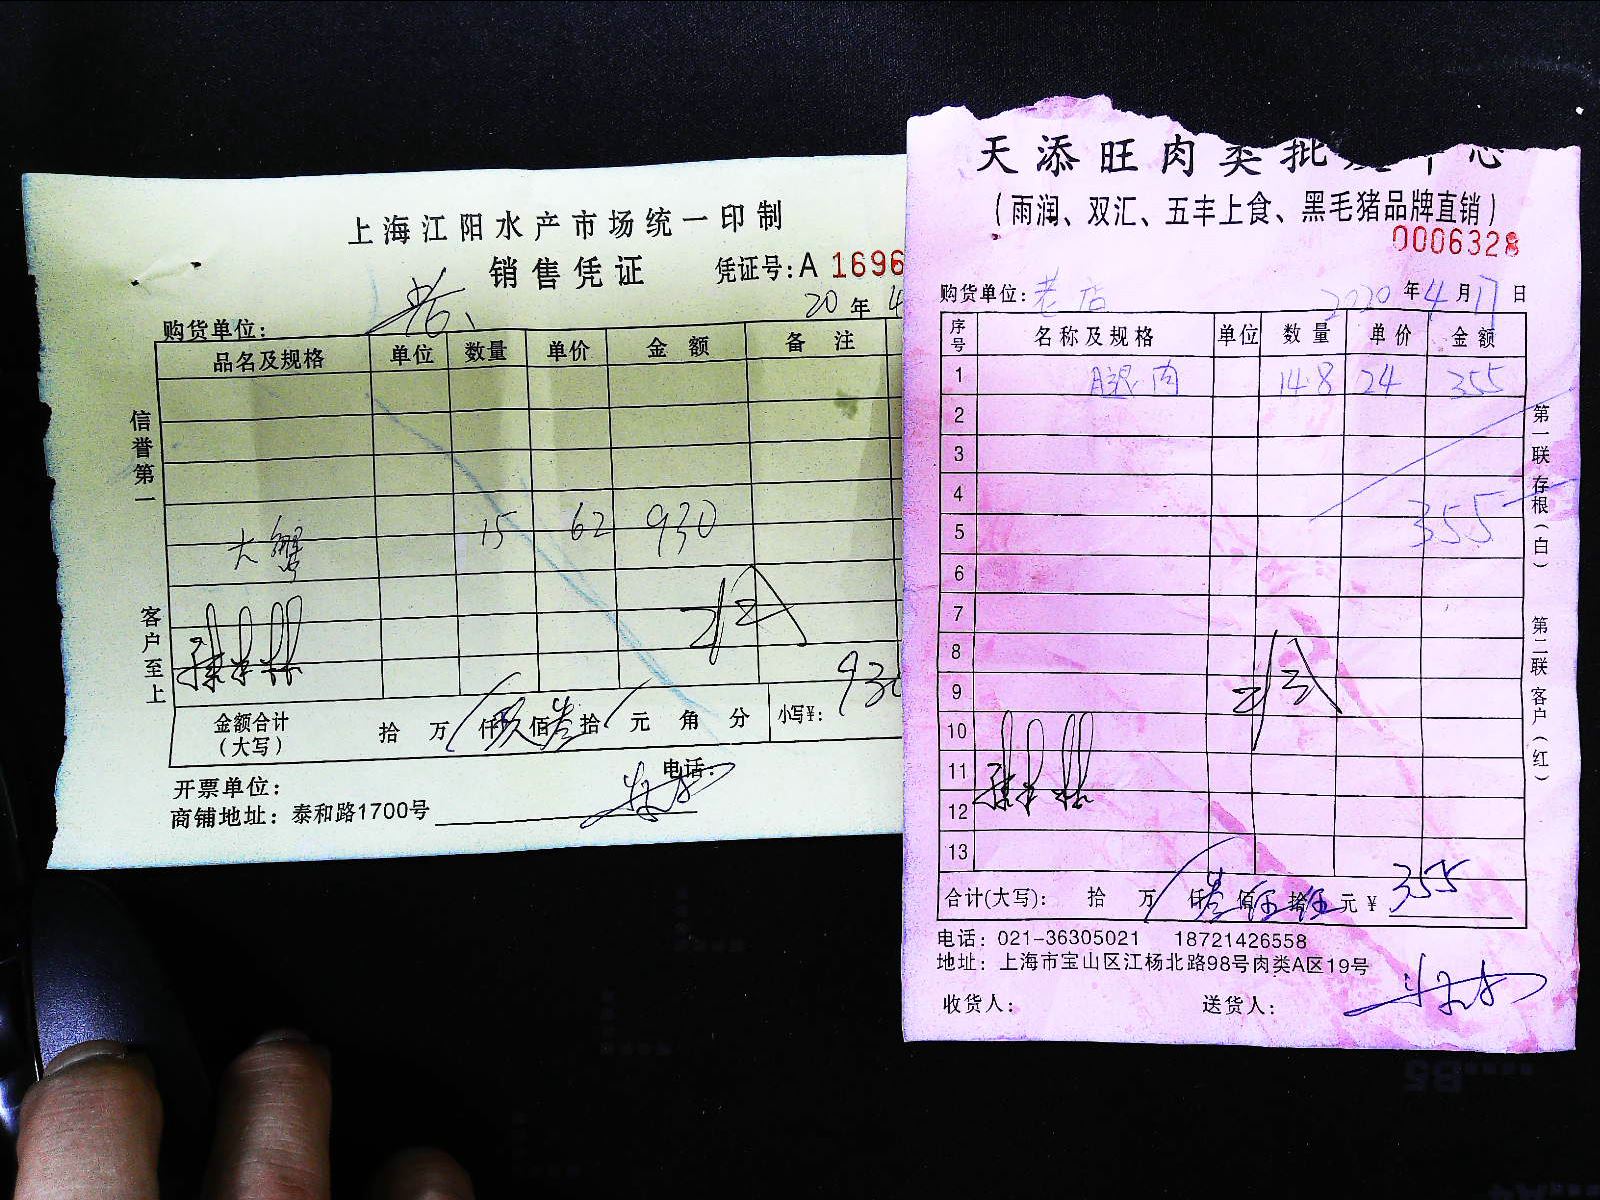 上海江阳水产市场统一印制
销售凭证
凭证号:A 1696
20 年 4
购货单位: 老
品名及规格 单位 数量 单价 金额 备注
大蟹 15 62 930
信誉第一
客户至上
金额合计(大写) 拾 万 仟 玖 佰 叁 拾 元 角 分 小写¥: 930
开票单位:
电话:
商铺地址: 泰和路1700号
天添旺肉类批发中心
(雨润、双汇、五丰上食、黑毛猪品牌直销)
0006328
购货单位: 老店 2020 年 4 月 17 日
序号 名称及规格 单位 数量 单价 金额
1 腿肉 14.8 24 355
2
3
4
5 355
6
7
8
9
10
11
12
13
第一联 存根(白)
第二联 客户(红)
合计(大写): 拾 万 仟 叁 佰 伍 拾 伍 元 ¥ 355
电话: 021-36305021 18721426558
地址: 上海市宝山区江杨北路98号肉类A区19号
收货人: 送货人: